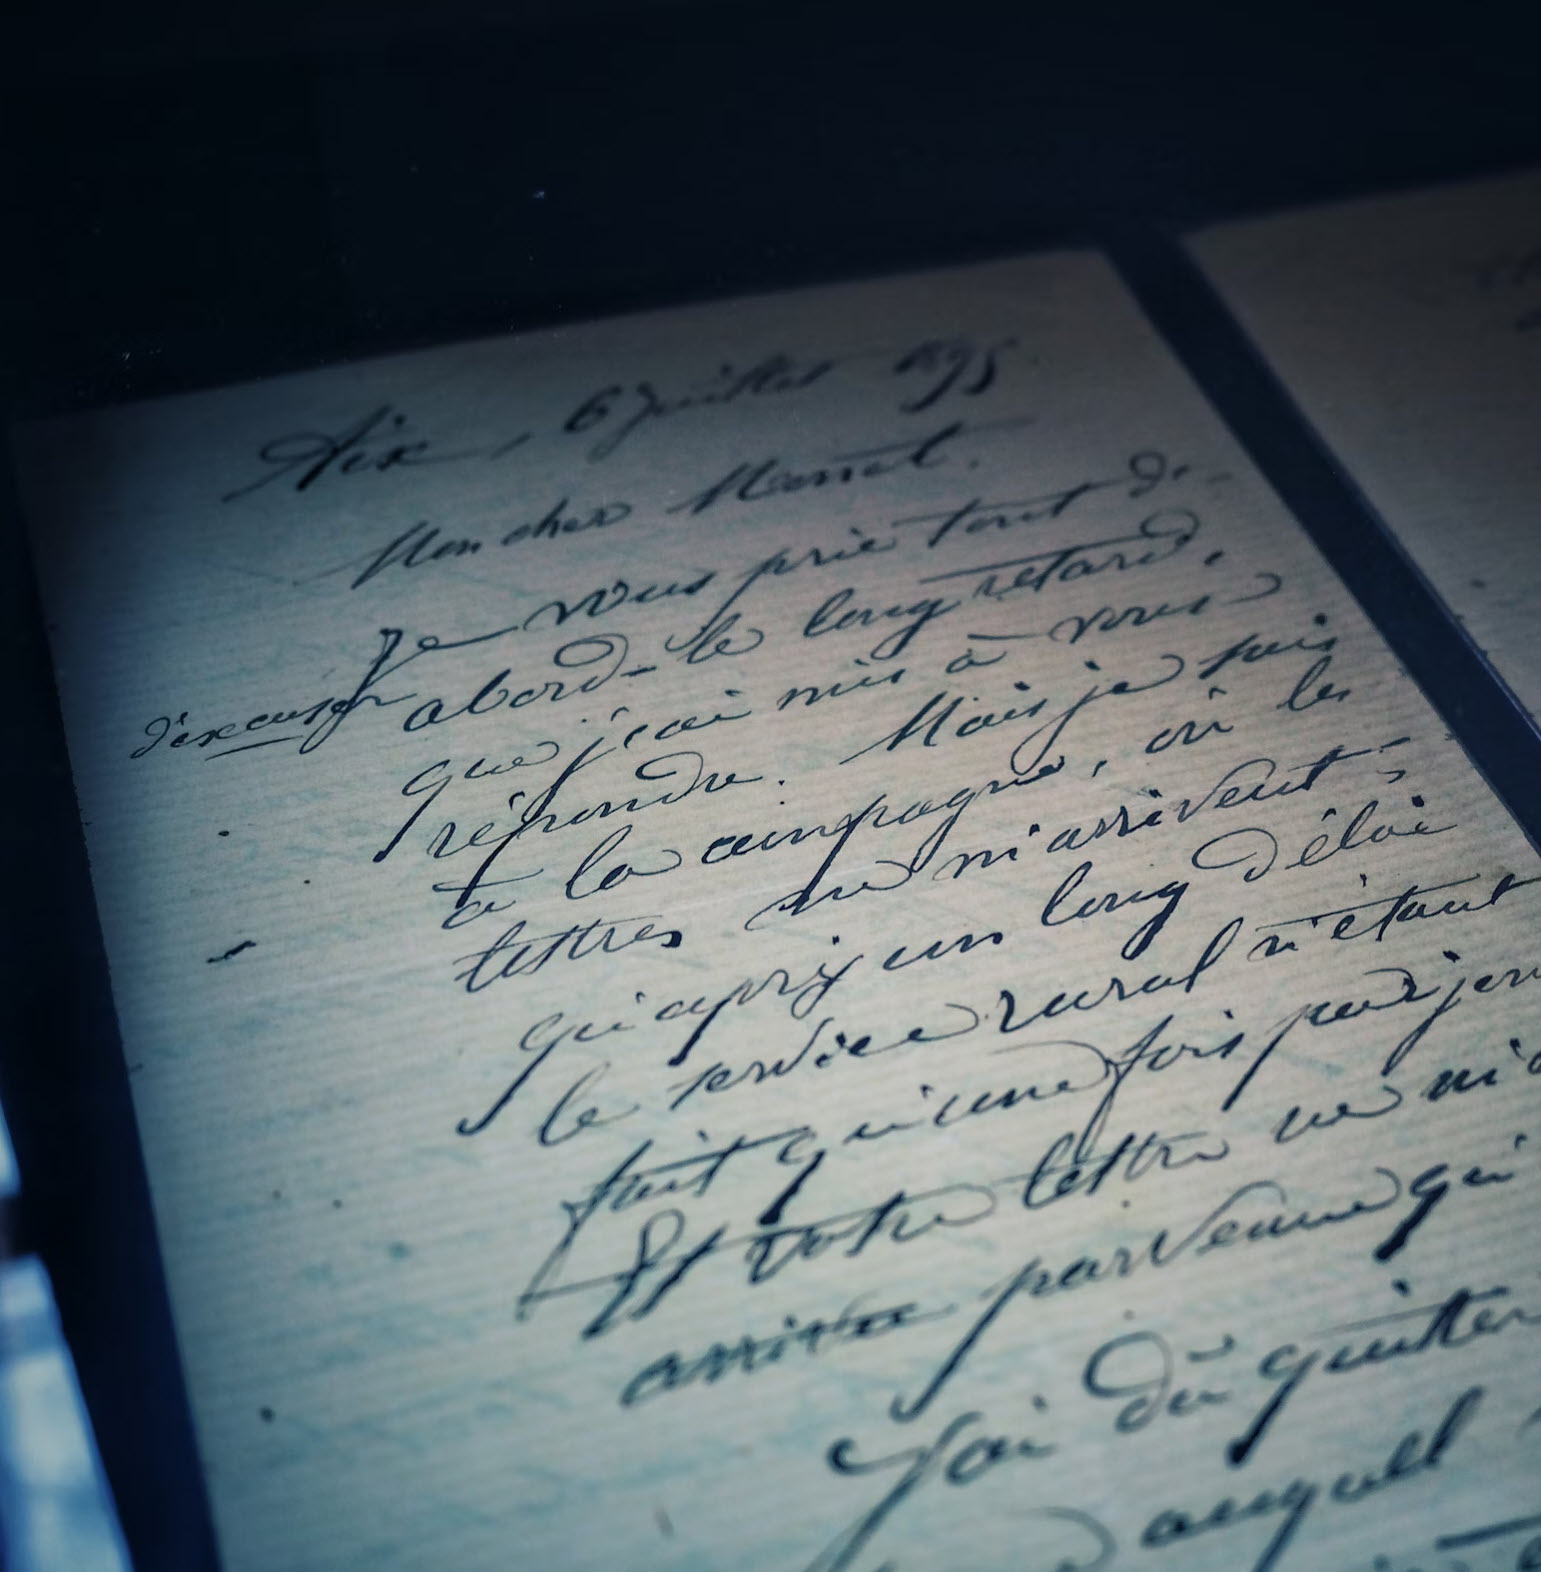 Aix, 6 juillet 1895
Mon cher Monet.
Je vous prie tout d'-
d'excuser abord le long retard,
que j'ai mis à vous
répondre. Mais je suis
à la campagne, où les
lettres ne m'arrivent
qu'après un long délai
le service rural n'étant
fait qu'une fois par jour
Et votre lettre ne m'a
arrivée parvenue qu'
J'ai dû quitter
auquel